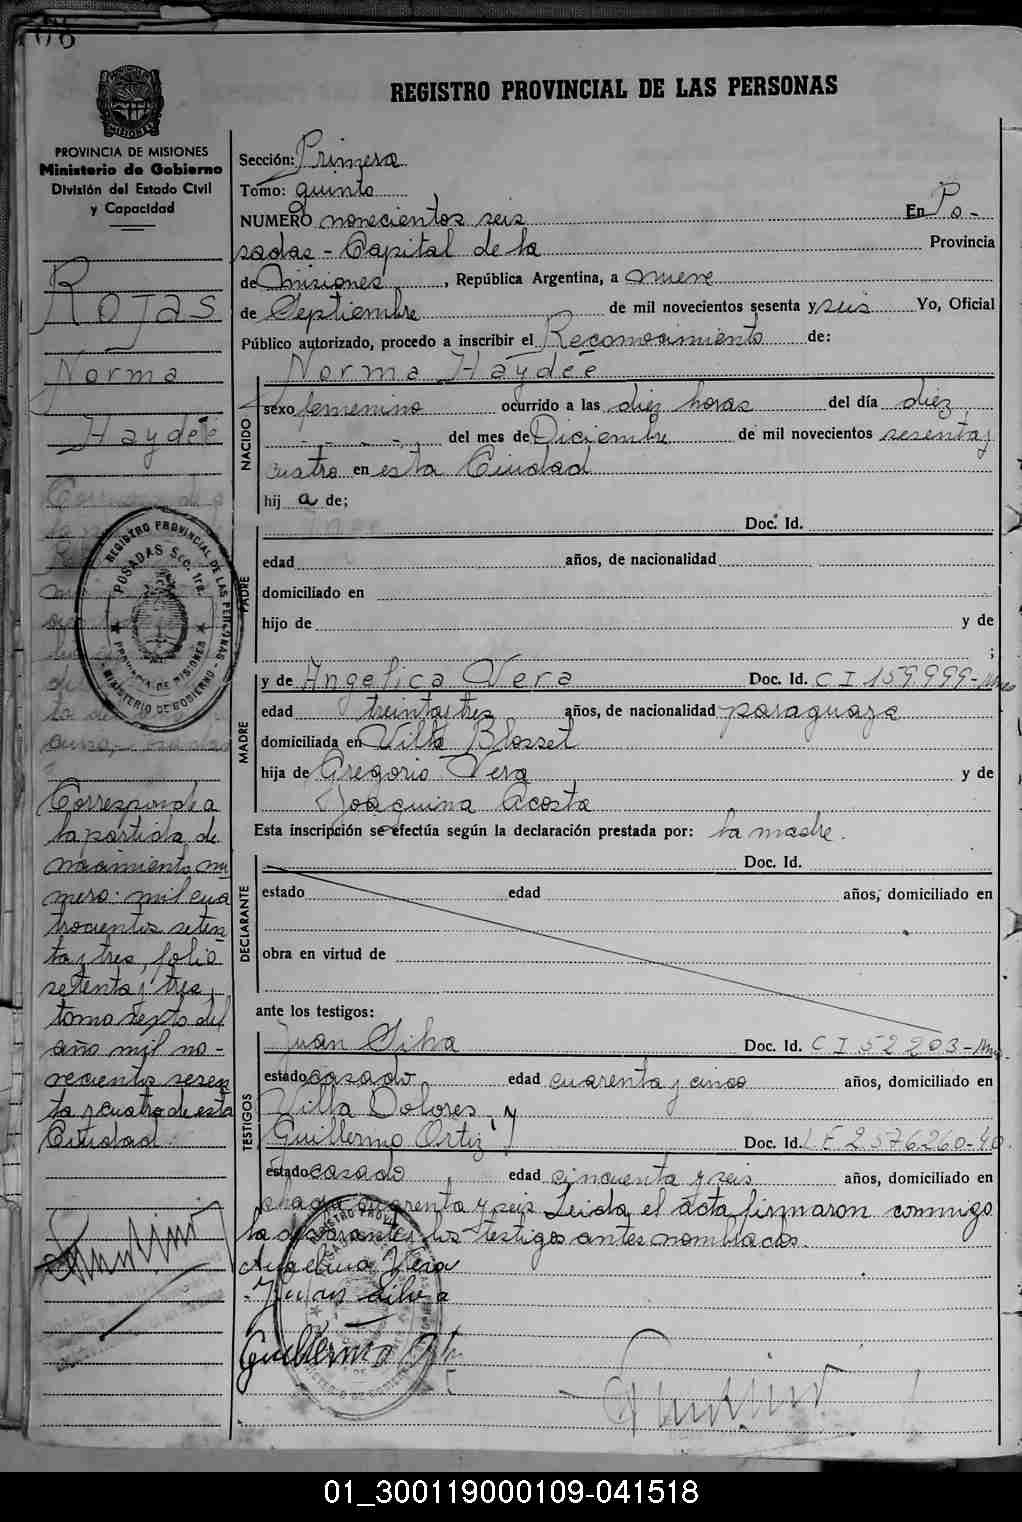 REGISTRO PROVINCIAL DE LAS PERSONAS
MISIONES
PROVINCIA DE MISIONES
Ministerio de Gobierno
División del Estado Civil
y Capacidad
Rojas
Norma
Haydée
Corresponde a
la partida de
nacimiento nu
mero: mil cua
trocientos seten
ta y tres, folio
setenta y tres,
tomo sexto del
año mil no-
vecientos sesen
ta y cuatro de esta
Ciudad.
Sección: Primera
Tomo: quinto
NUMERO novecientos seis En Po-
sadas - Capital de la Provincia
de Misiones, República Argentina, a nueve
de Septiembre de mil novecientos sesenta y seis Yo, Oficial
Público autorizado, procedo a inscribir el Reconocimiento de:
NACIDO
Norma Haydée
sexo femenino ocurrido a las diez horas del día diez
del mes de Diciembre de mil novecientos sesenta y
cuatro en esta Ciudad
hij a de;
PADRE
Doc. Id.
edad años, de nacionalidad
domiciliado en
hijo de y de
;
MADRE
y de Angélica Vera Doc. Id. C I 159999-Mnes
edad treinta y tres años, de nacionalidad paraguaya
domiciliada en Villa Blosset
hija de Gregorio Vera y de
Joaquina Acosta
Esta inscripción se efectúa según la declaración prestada por: la madre.
DECLARANTE
Doc. Id.
estado edad años, domiciliado en
obra en virtud de
ante los testigos:
TESTIGOS
Juan Silva Doc. Id. C I 52203-Mnes
estado casado edad cuarenta y cinco años, domiciliado en
Villa Dolores, y
Guillermo Ortiz Doc. Id. L E 2576260-40
estado casado edad cincuenta y seis años, domiciliado en
chacra cuarenta y seis Leida el acta firmaron conmigo
la declarante y los testigos antes nombrados.
Angelina Vera
Juan Silva
Guillermo
REGISTRO PROVINCIAL DE LAS PERSONAS - MINISTERIO DE GOBIERNO
POSADAS Sec. 1ra.
PROVINCIA DE MISIONES
01_300119000109-041518